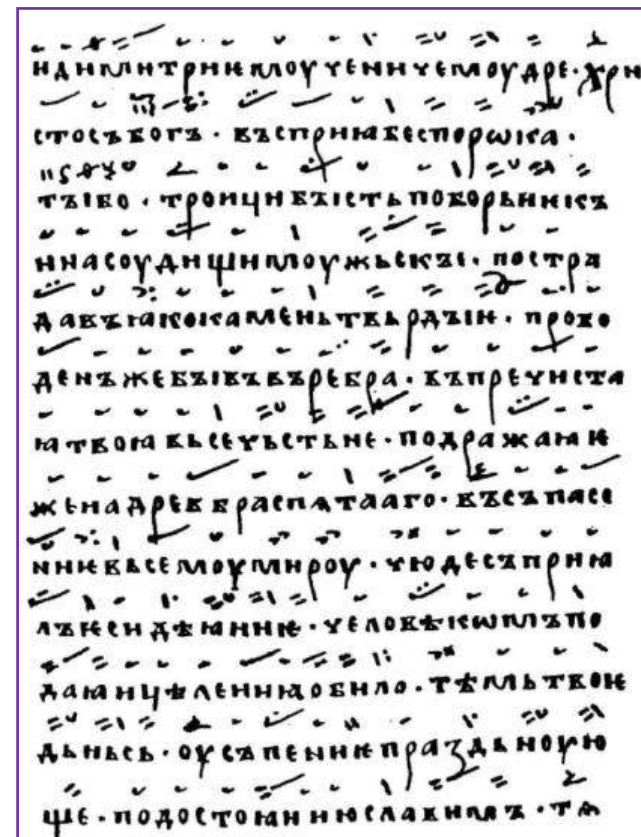 и димитриѥ моученниче моудре · хри
стосъ богъ · въсприꙗ беспорѡка ·
тꙑ бо · троици бꙑсть поборьникъ
и на соудищи моужьскꙑ · постра
давъ ꙗко камень твьрдꙑи · пробо
денъ же бꙑвъ въ ребра · въ пречиста
ꙗ твоꙗ вьсечьстьне · подражаꙗ ѥ
же на древѣ распѧтааго · въ съпасе
ниѥ вьсемоу мироу · чюдесъ приꙗ
лъ ѥси дѣꙗниѥ · человѣкѡмъ по
даꙗ ицѣлениꙗ обило · тѣмь твоѥ
дьньсь · оусъпениѥ праздьноую
ще · по достоꙗнию славимъ · тѧ